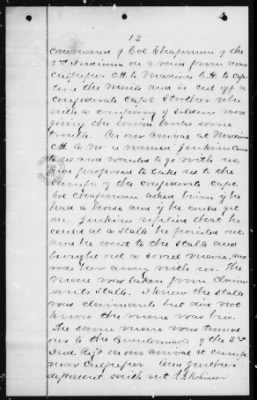 12
command of Col Chapman of the
3rd Indiana on a raid from near
Culpeper C.H. to Madison C.H. to cap
ture the mails and to cut off a
Confederate Capt Strother who
with a company of soldiers was
using the town
mails. On our arrival at Madison
C.H. a Mr or named Jenkins came
to us and wanted to go with us,
and proposed to take us to the
camp of the Confederate Capt
Col Chapman asked him if he
had a horse and if he could get
one. Jenkins replied that he
could at a stable he pointed out,
and he went to the stable and
brought out a sorrel mare, and
was away with us. The
mare was taken from claim
ants stable. I knew the stable
was claimants but did not
know the mare was his.
The same mare was turned
over to the Quartermaster of the 3rd
Ind. Regt on our arrival at camp
near Culpeper. And further
deponent saith not. Robinson